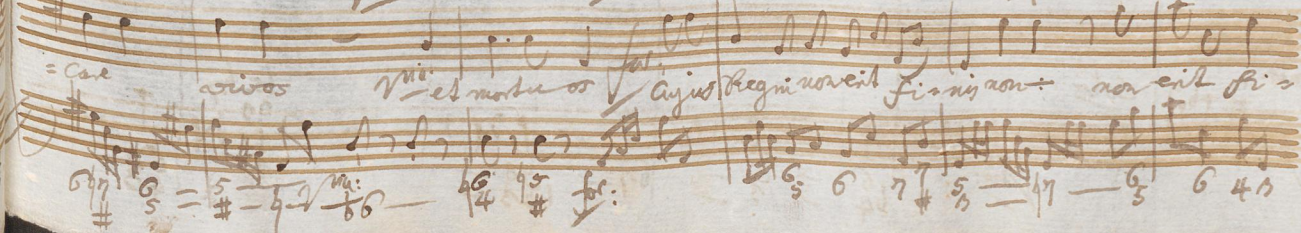 = care vivos Pia: et mortuos for. Cujus Regni non erit fi=nis non ÷ non erit fi=
6 ♮7 # 6 5 = 5 # — ♮ Pia: ♭6 — ♮6 4 ♮5 # for: 6 5 6 7 7 # 5 3 — ♮7 — 6 5 6 4 3